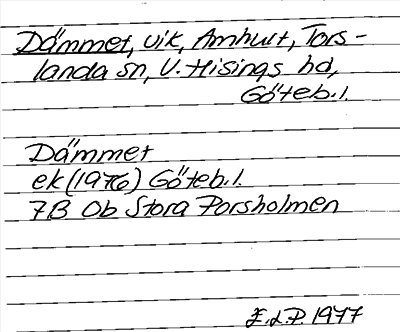 Dämmet, vik, Amhult, Tors-
landa sn, V. Hisings hd,
Göteb. l.
Dämmet
ek (1976) Göteb. l.
7B 0b Stora Porsholmen
E.L.P. 1977